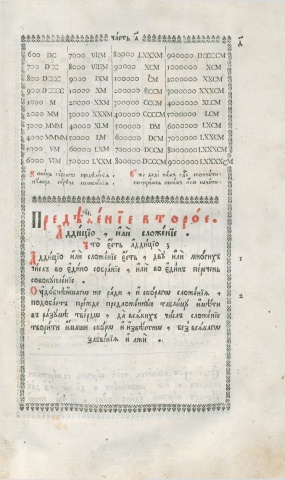 часть а҃
600 DC 7000 VIIM 80000 LXXXM 900000 DCCCCM
700 DCC 8000 VIIIM 90000 XCM 1000000 XCM
800 DCCC 9000 IXM 100000 CM 2000000 XXCM
900 DCCCC 10000 XM 200000 CCM 3000000 XXXCM
1000 M 20000 XXM 300000 CCCM 4000000 XLCM
2000 MM 30000 XXXM 400000 CCCCM 5000000 LCM
3000 MMM 40000 XLM 500000 DM 6000000 LXCM
4000 MMMM 50000 LM 600000 DCM 7000000 LXXCM
5000 VM 60000 LXM 700000 DCCM 8000000 LXXXCM
6000 VIM 70000 LXXM 800000 DCCCM 9000000 LXXXXCM
Предѣленїе второе.
Аддицїо , или сложенїе .
Что есть аддицїо ;
Аддицїо или сложенїе есть , двꙋ или многихъ
числъ во едино собранїе , или во единъ перечень
совокꙋпленїе .
1
ради и скорагѡ сложенїѧ ,
2
подобаетъ прежде предложеннꙋю таблицꙋ имѣти
въ разꙋмѣ твердѡ , да всѧкихъ числъ сложенїе
творити имаши скорѡ и извѣстнѡ , без всѧкагѡ
забвенїѧ и лжи .